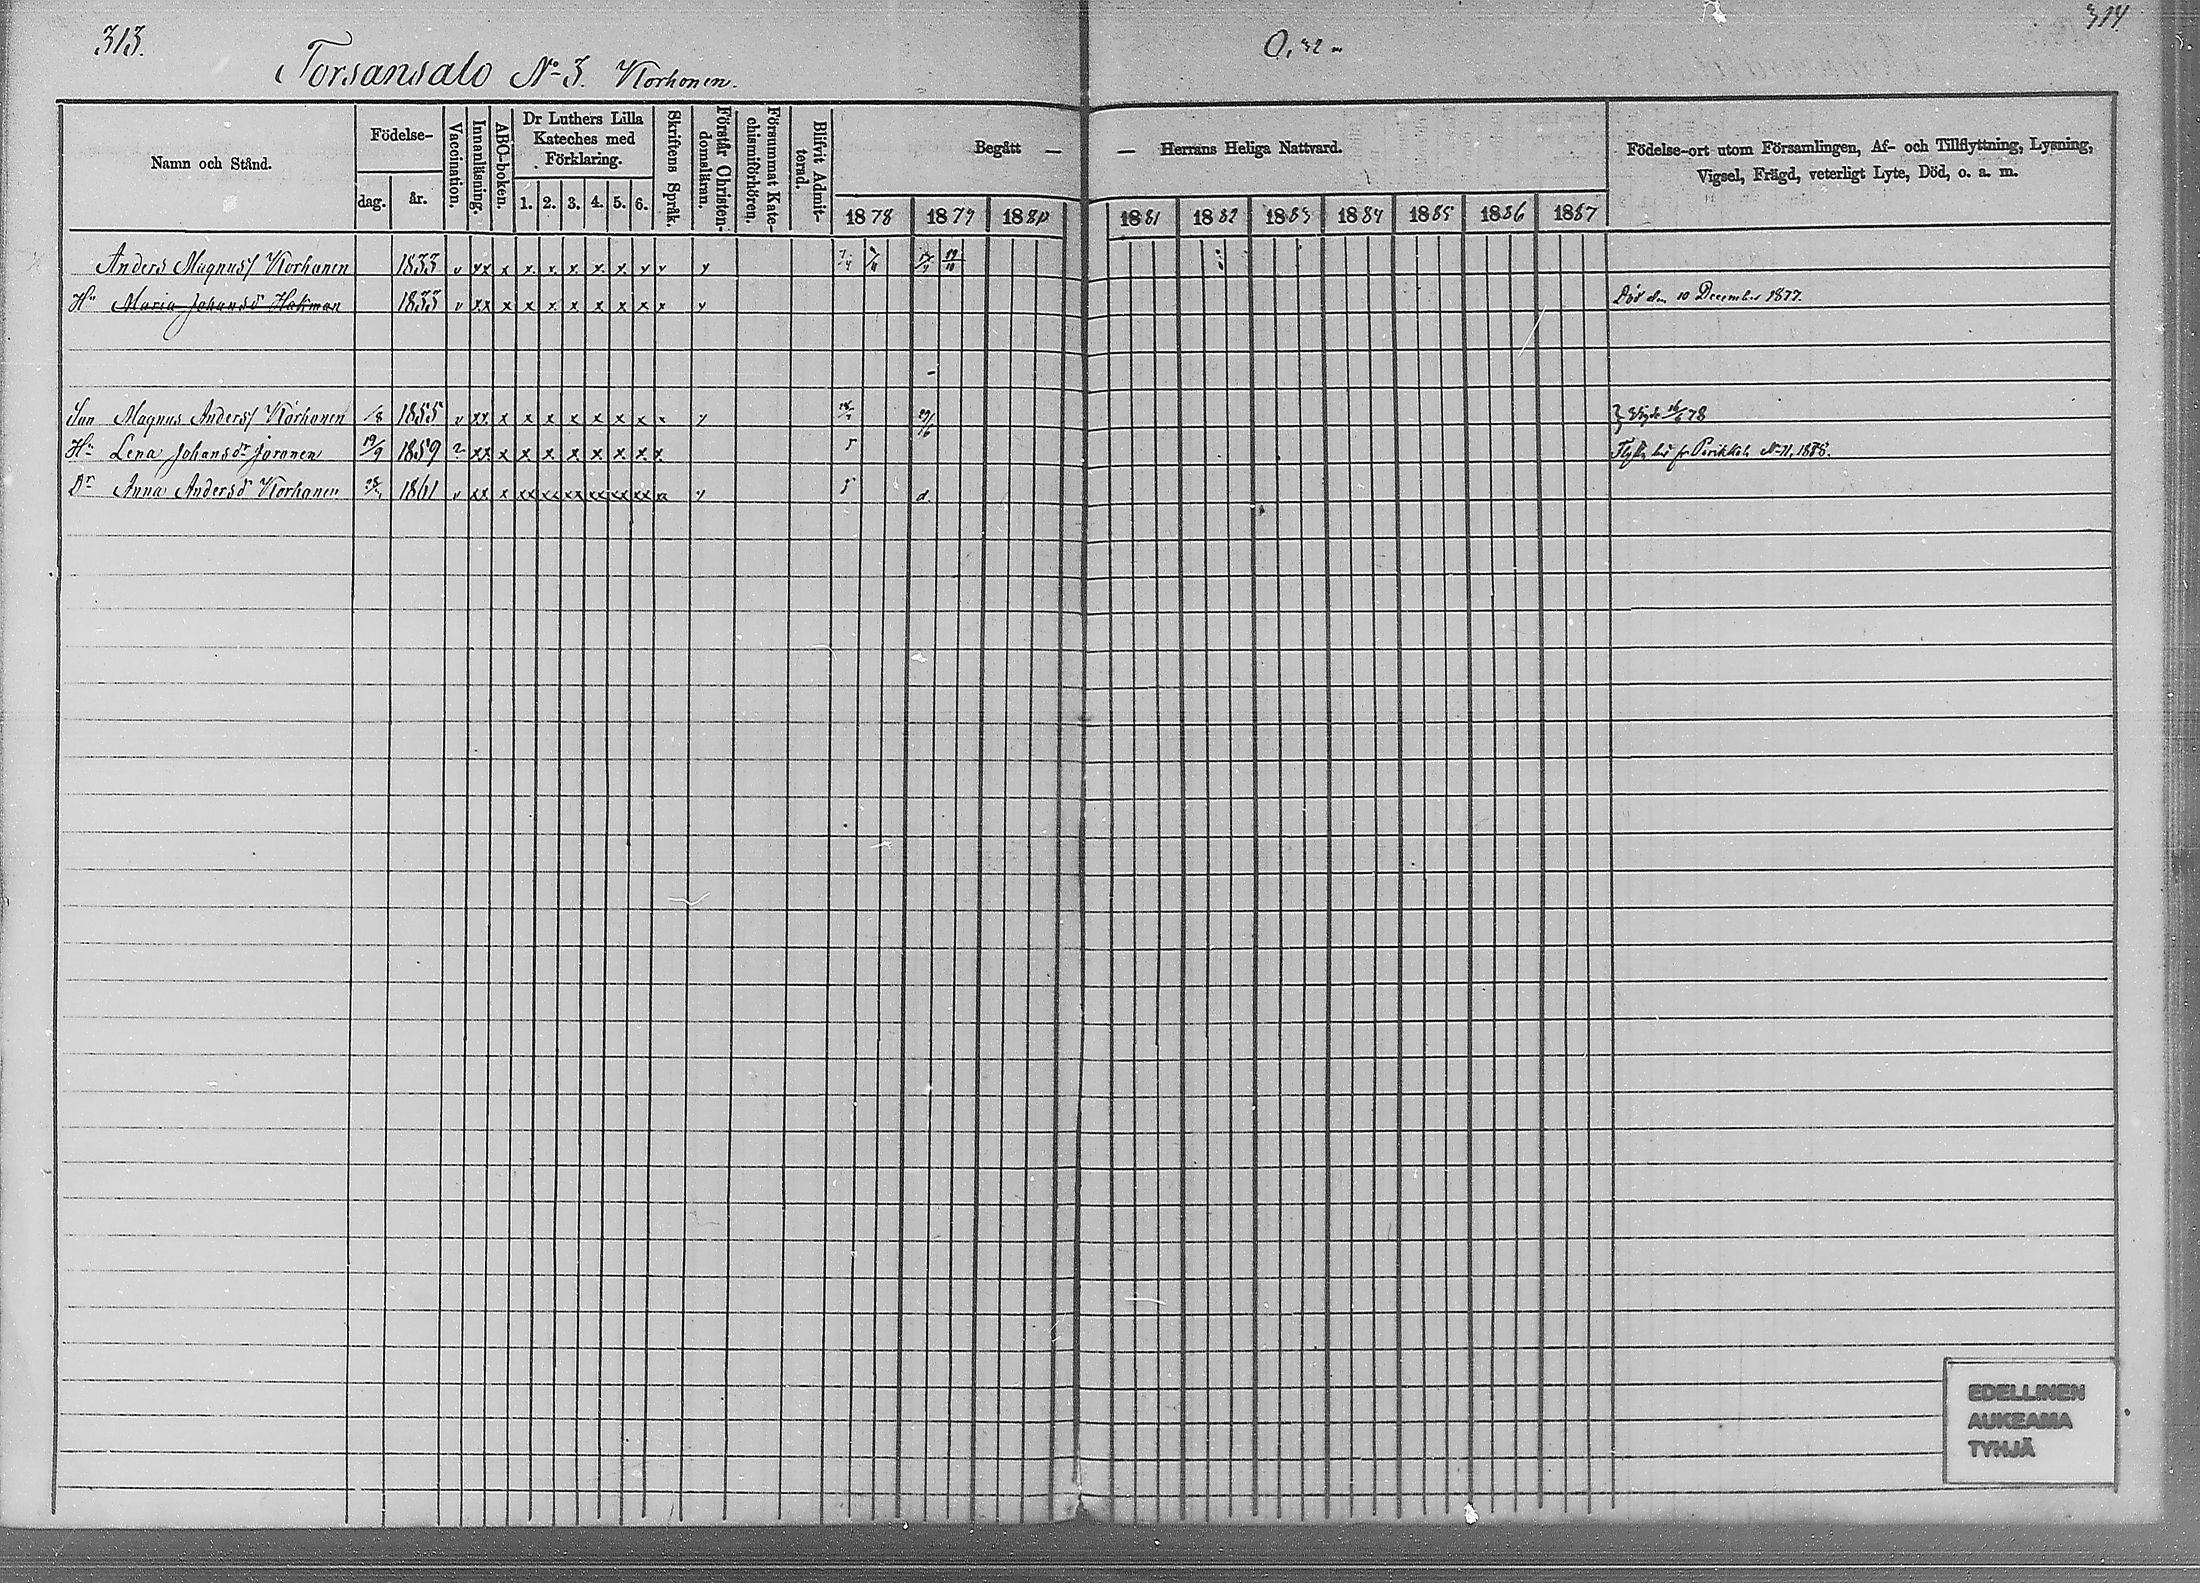 313.
314.
Torsansalo No 3. Korhonen.
0,32
Namn och Stånd.
Födelse-
dag.
år.
Vaccination.
Innanläsning.
ABC-boken.
Dr Luthers Lilla
Kateches med
Förklaring.
1. 2. 3. 4. 5. 6.
Skriftens Språk.
Förstår Christen-
domsläran.
Försummat Kate-
chismiförhören.
Blifvit Admit-
terad.
Begått —
— Herrans Heliga Nattvard.
1878 1879 1880 1881 1882 1883 1884 1885 1886 1887
Födelse-ort utom Församlingen, Af- och Tillflyttning, Lysning,
Vigsel, Frägd, veterligt Lyte, Död, o. a. m.
Anders Magnuss Korhonen 1833 v xx x x x x x x v v v
Hu Maria Johansdr Hakman 1833 v xx x x x x x x x x v Död den 10 December 1877.
Son Magnus Anderss Korhonen 1855 v xx x x x x x x x
Hu Lena Johansdr Joronen 19/9 1859 xx x x x x x x x x
Dr Anna Andersdr Korhonen 1861 v xx x xx xx xx xx xx xx
EDELLINEN
AUKEAMA
TYHJÄ